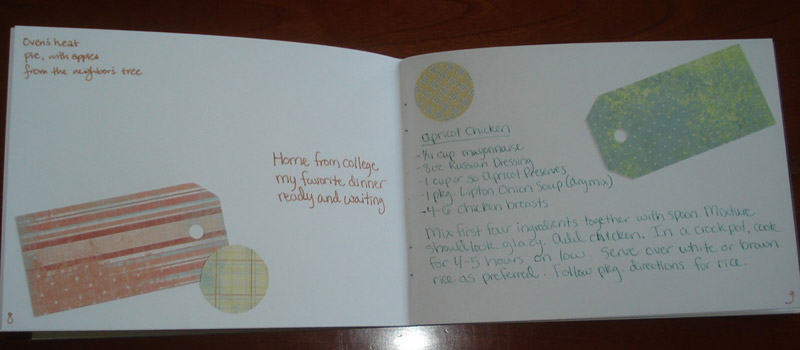 Oven's heat
pie, with apples
from the neighbor's tree
Home from college
my favorite dinner
ready and waiting
8
Apricot Chicken
-1/4 cup mayonnaise
-8oz Russian Dressing
-1 cup or so Apricot Preserves
-1 pkg. Lipton Onion Soup (dry mix)
-4-6 chicken breasts
Mix first four ingredients together with spoon. Mixture
should look glazy. Add chicken. In a crockpot, cook
for 4-5 hours on low. Serve over white or brown
rice as preferred. Follow pkg. directions for rice.
9